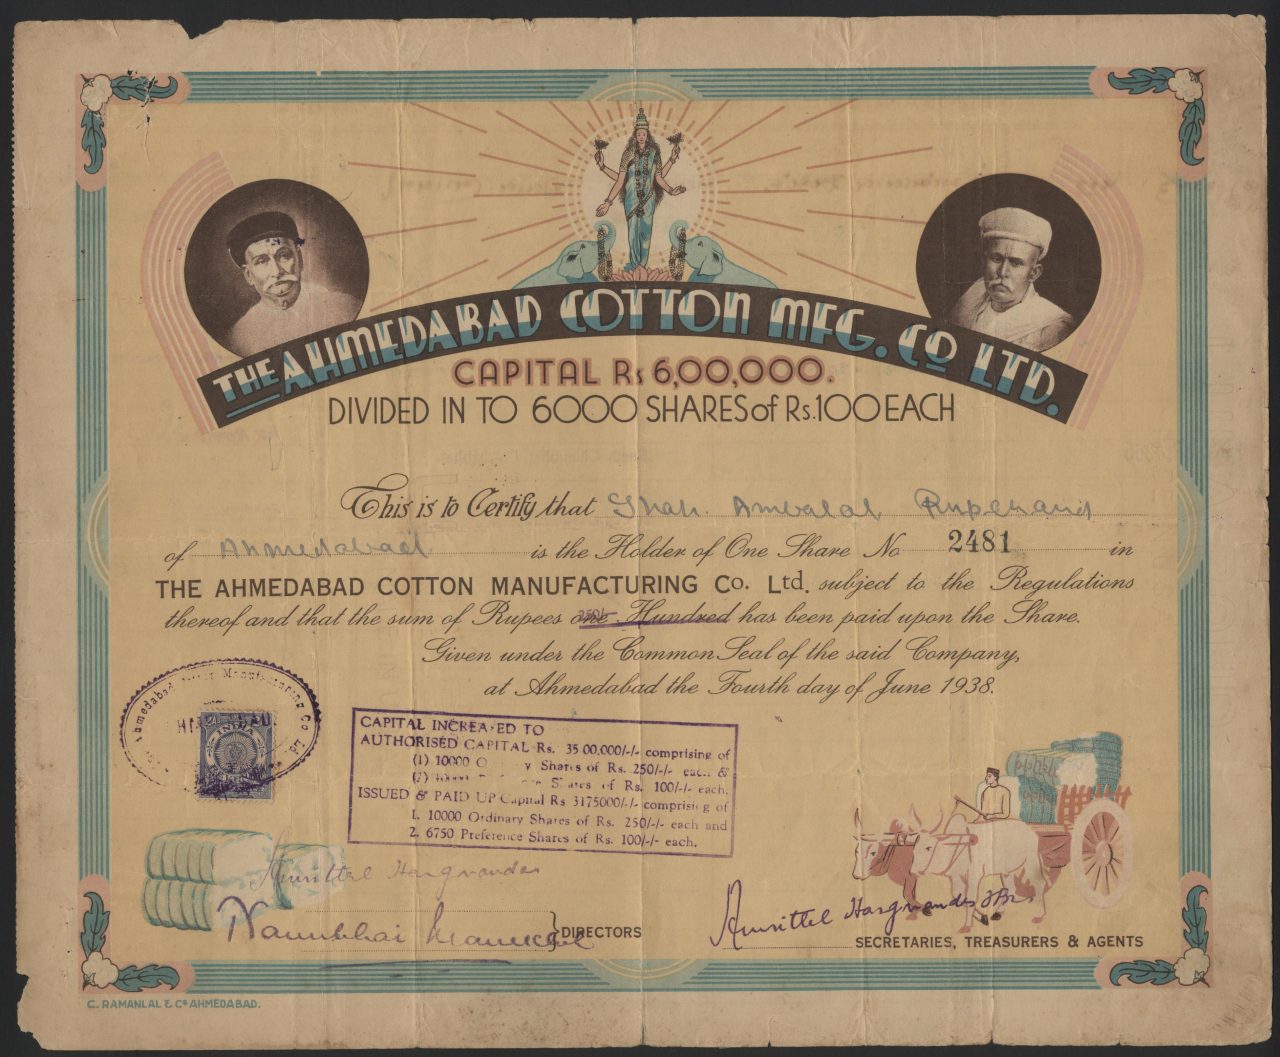 THE AHMEDABAD COTTON MFG. CO LTD.
CAPITAL Rs 6,00,000.
DIVIDED IN TO 6000 SHARES of Rs. 100 EACH
This is to Certify that Shah. Ambalal Rupchand
of Ahmedabad is the Holder of One Share No 2481 in
THE AHMEDABAD COTTON MANUFACTURING Co. Ltd. subject to the Regulations
thereof and that the sum of Rupees one Hundred 250/- has been paid upon the Share.
Given under the Common Seal of the said Company,
at Ahmedabad the Fourth day of June 1938.
Ahmedabad Manufacturing Co Ld
INDIA
CAPITAL INCREASED TO
AUTHORISED CAPITAL Rs. 35 00,000/-/- comprising of
(1) 10000 y Shares of Rs. 250/-/- each &
(2) 10000 Shares of Rs. 100/-/- each,
ISSUED & PAID UP Capital Rs 3175000/-/- comprising of
1. 10000 Ordinary Shares of Rs. 250/-/- each and
2. 6750 Preference Shares of Rs. 100/-/- each.
DIRECTORS
SECRETARIES, TREASURERS & AGENTS
C. RAMANLAL & Co AHMEDABAD.